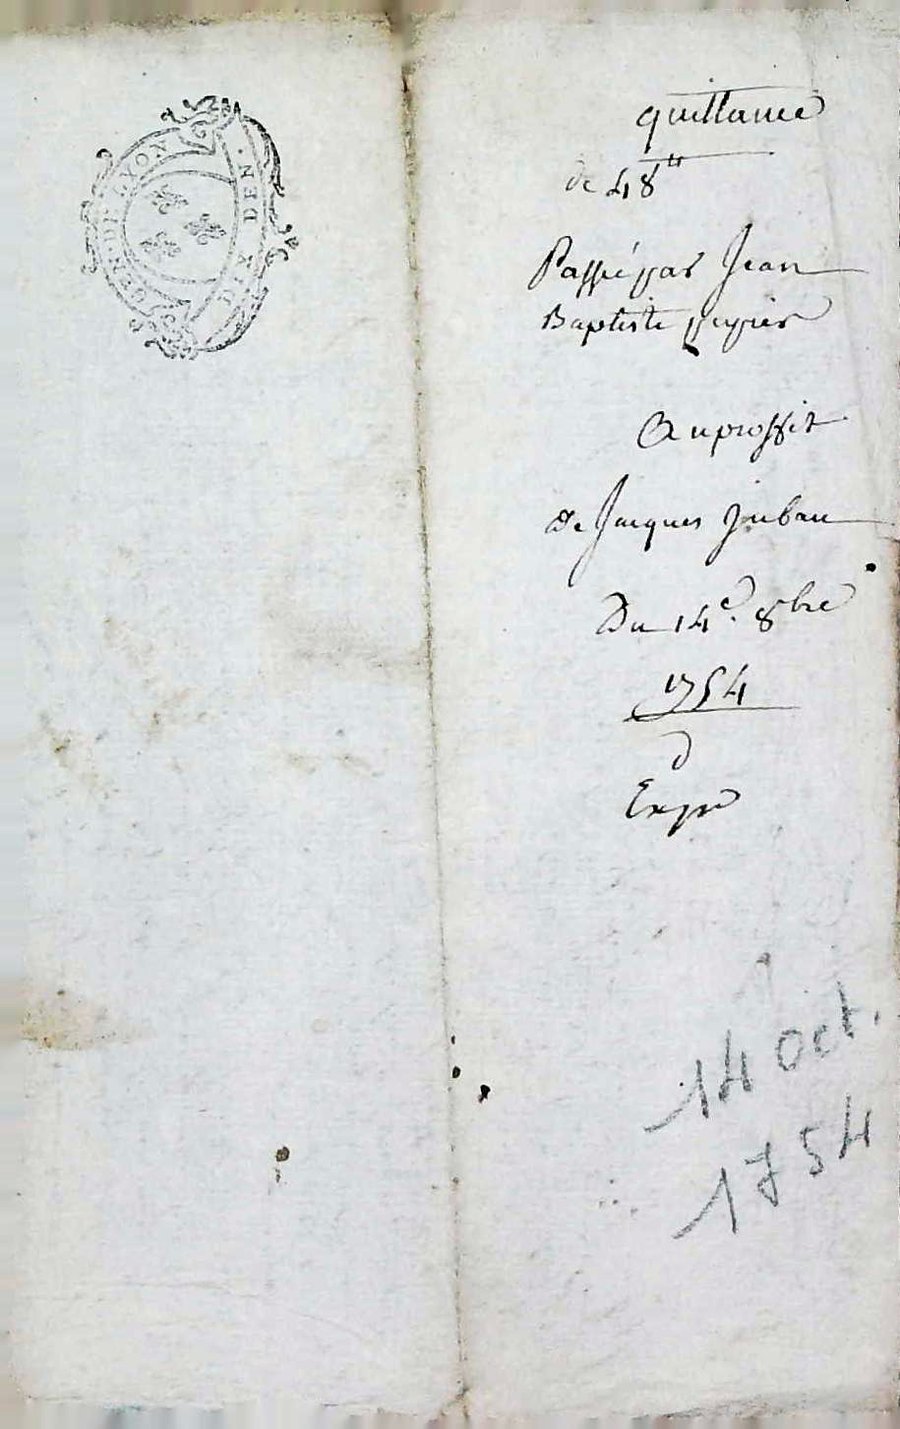 GEN. DE LYON
SIX DEN.
quittance
de 48 ᵗᵗ
Passé par Jean
Baptiste
Au proffit
de Jacques Jouban
Du 14ᵉ. 8bre
1754
Expᵉ
14 oct.
1754